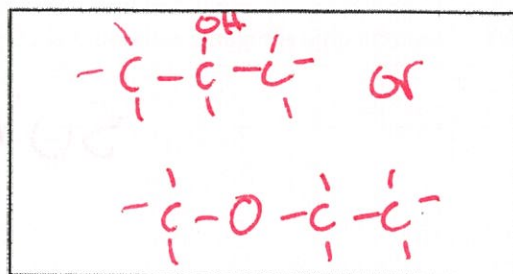 OH
- C - C - C - or
- C - O - C - C -